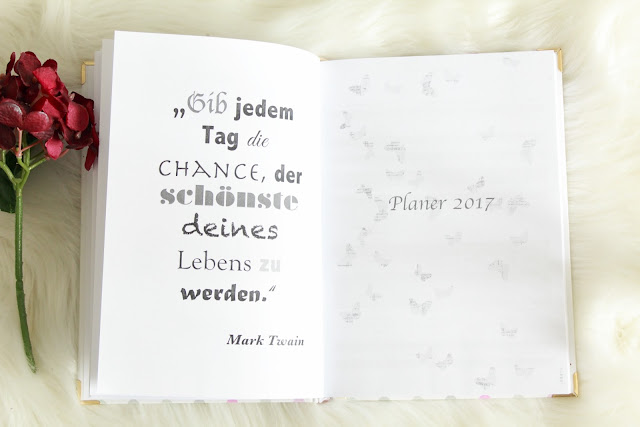 „Gib jedem
Tag die
CHANCE, der
schönste
deines
Lebens zu
werden.“
Mark Twain
Planer 2017